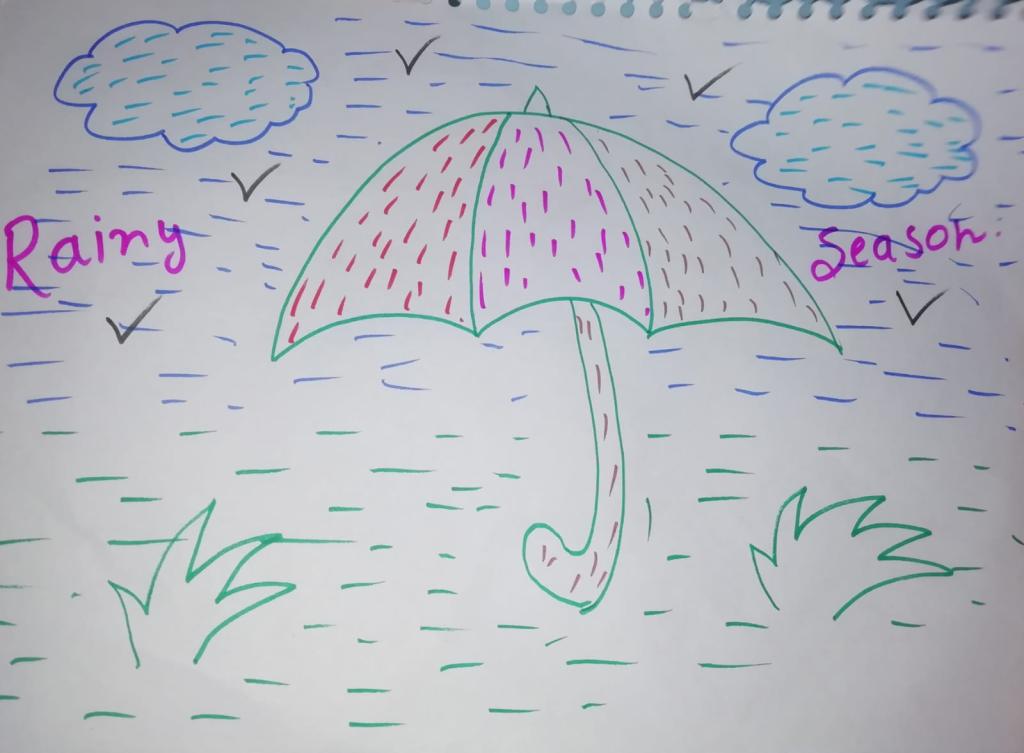 Rainy Season: